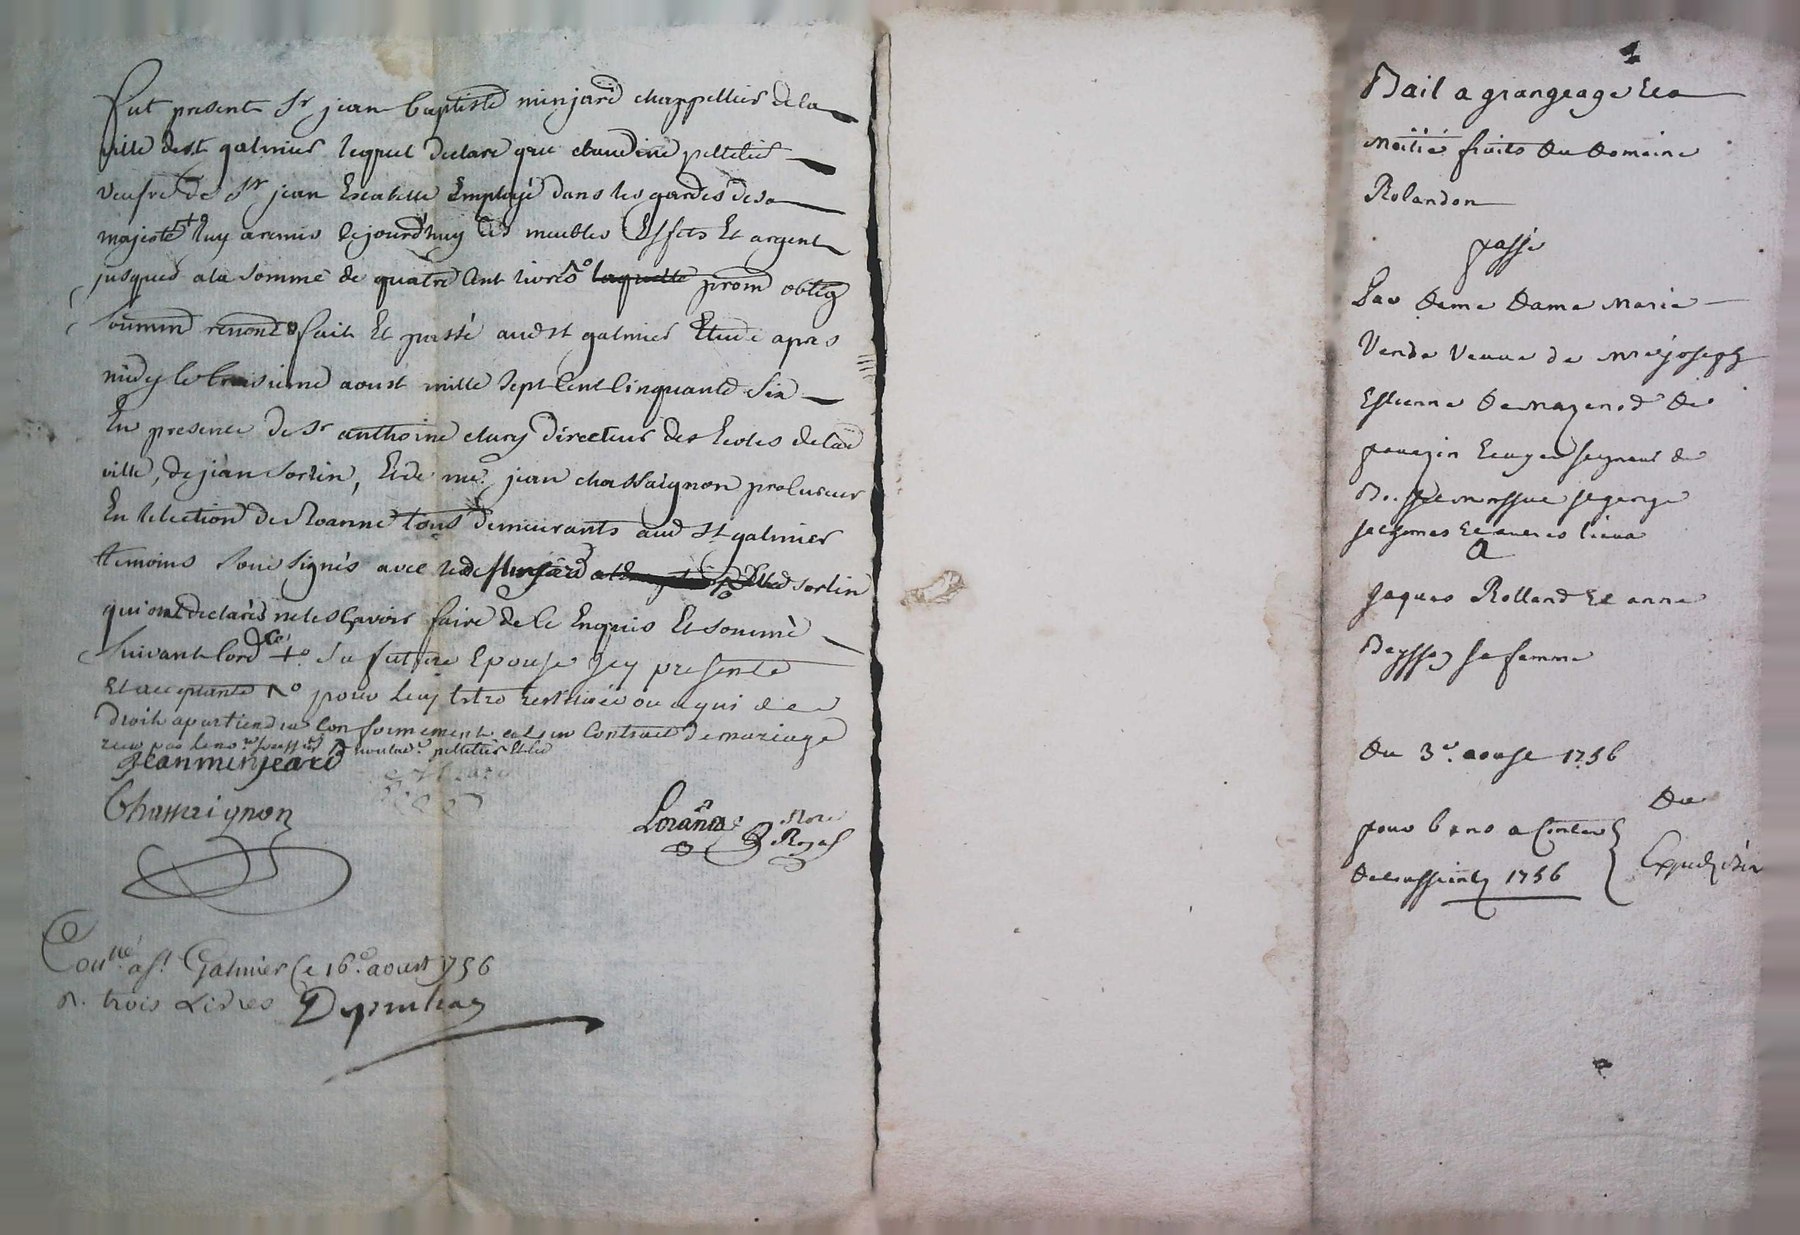 fut present Sr jean baptiste minjard chappellier de la
ville de st galmier lequel declare que claudine pelletier
veufve de Sr jean Escabelle Employé dans les gardes de sa
majesté luy a remis cejourd'huy des meubles Effets Et argent
jusques a la somme de quatre Cent livres laquelle prom oblig
soumm renonc fait Et passé aud st galmier Etude apres
midy le troisieme aoust mille sept Cent Cinquante Six
En presence de Sr anthoine clary directeur des Ecoles de lad
ville, de jean sorlin, Et de me jean chassaignon procureur
En lelection de Roanne tous demeurants aud st galmier
temoins sousignés avec led minjard sorlin
qui ont declarés ne le sçavoir faire de ce Enquis Et sommé
suivant lord sa future Epouse Icy presente
Et acceptante pour leuy Estre restituée ou a qui de
droit apartiendra conformement a leur Contract de mariage
pelletier Et led
Jean minjeard
Chassaignon
Not
Royal
Con^lé a st Galmier Ce 16e aoust 1756
R. trois Livres
Bail a grangeage Et a
Moitié fruits du domaine
Rolandon
passé
Par dame dame Marie
Verde Veuve de Mre joseph
Estienne de Mazenod de
pavezin Ecuyer seigneur de
st george
Et autres lieux
A
Jaques Rolland Et anne
Beysson sa femme
du 3e. aoust 1756
pour 6 ans a Conter
de toussaints 1756